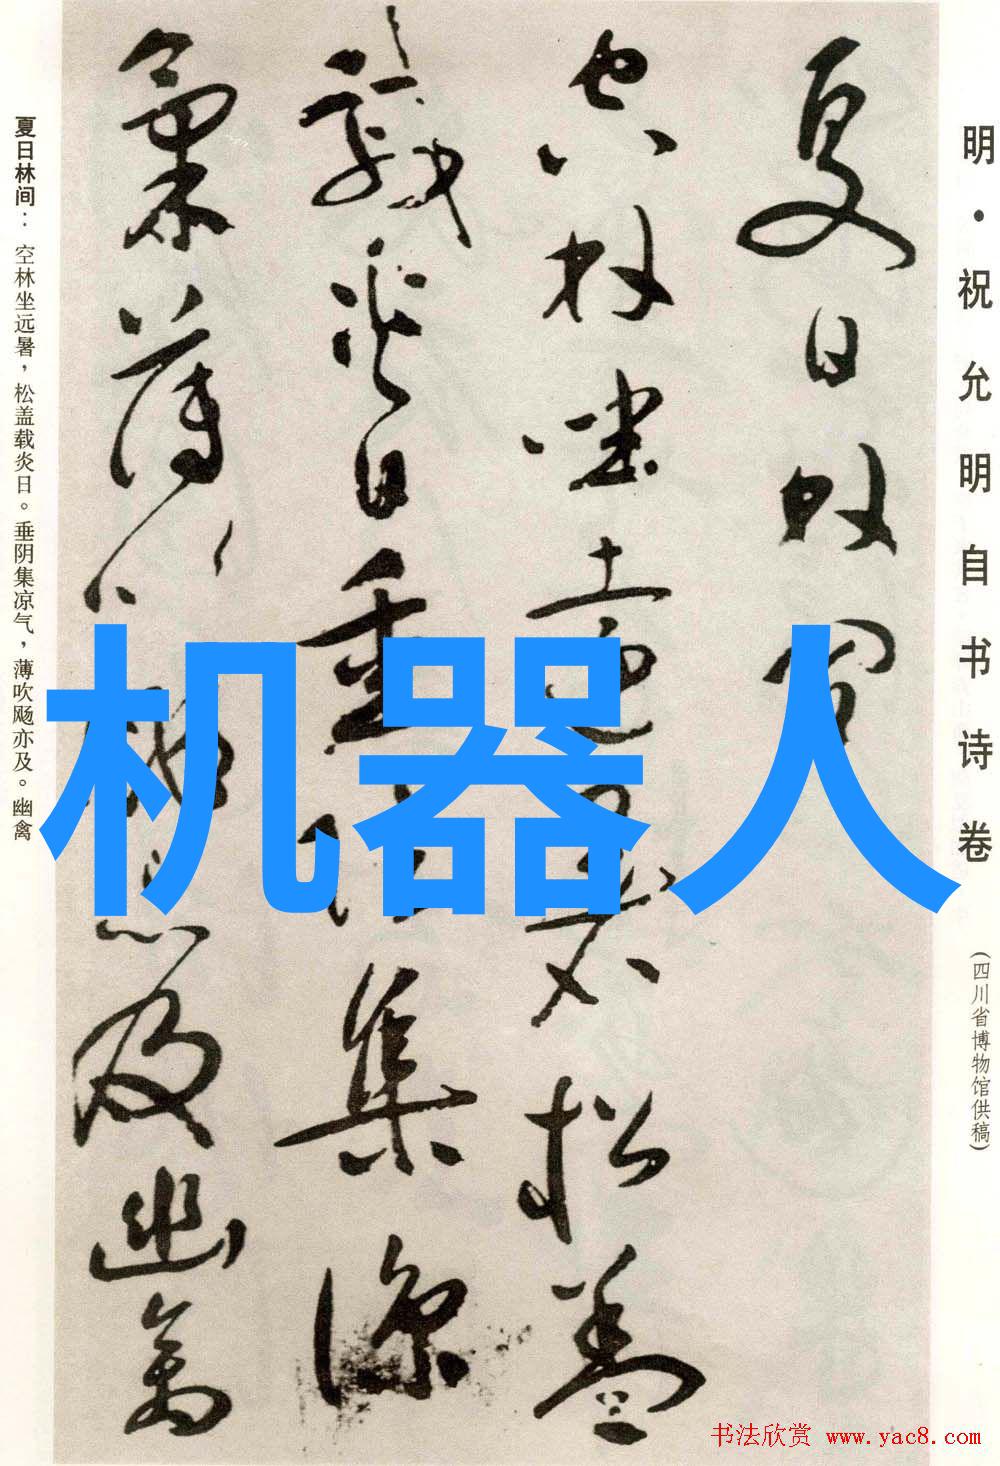 明·祝允明自书诗卷
(四川省博物馆供稿)
夏日林间
空林坐远暑松盖
载炎日垂阴集凉
气薄吹飏亦及幽禽
夏日林间：空林坐远暑，松盖载炎日。垂阴集凉气，薄吹飏亦及。幽禽
机器人
书法欣赏 www.yac8.com